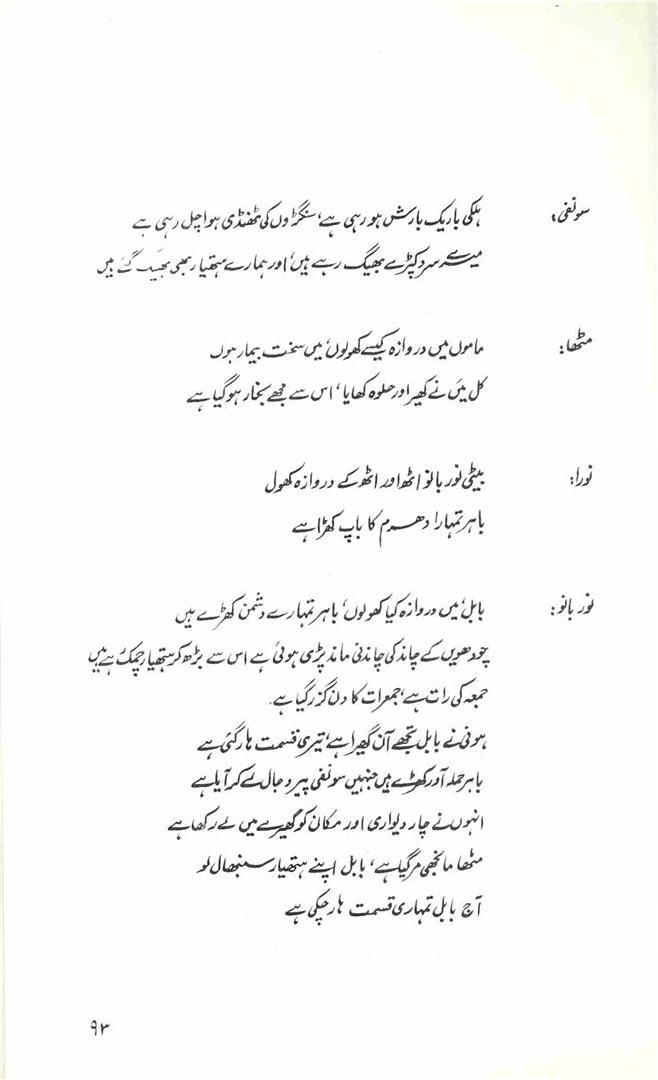 سونفی: ہلکی باریک بارش ہو رہی ہے، سنگڑوں کی ٹھنڈی ہوا چل رہی ہے
میرے سرد کپڑے بھیگ رہے ہیں، اور ہمارے ہتھیار بھی بھیگ گئے ہیں
مٹھا: ماموں میں دروازہ کیسے کھولوں، میں سخت بیمار ہوں
کل میں نے کھیر اور حلوہ کھایا، اس سے مجھے بخار ہو گیا ہے
نورا: بیٹی نور بانو اٹھ اور اٹھ کے دروازہ کھول
باہر تمہارا دھرم کا باپ کھڑا ہے
نور بانو: بابل، میں دروازہ کیا کھولوں، باہر تمہارے دشمن کھڑے ہیں
چودھویں کے چاند کی چاندنی ماند پڑی ہوئی ہے اس سے بڑھ کر ہتھیار چمک رہے ہیں
جمعہ کی رات ہے، جمعرات کا دن گزر گیا ہے.
ہونی نے بابل تجھے آن گھیرا ہے، تیری قسمت ہار گئی ہے
باہر حملہ آور کھڑے ہیں جنہیں سونفی پیر و جال لے کر آیا ہے
انہوں نے چار دیواری اور مکان کو گھیرے میں لے رکھا ہے
مٹھا مانجھی مر گیا ہے، بابل اپنے ہتھیار سنبھال لو
آج بابل تمہاری قسمت ہار چکی ہے
۹۳